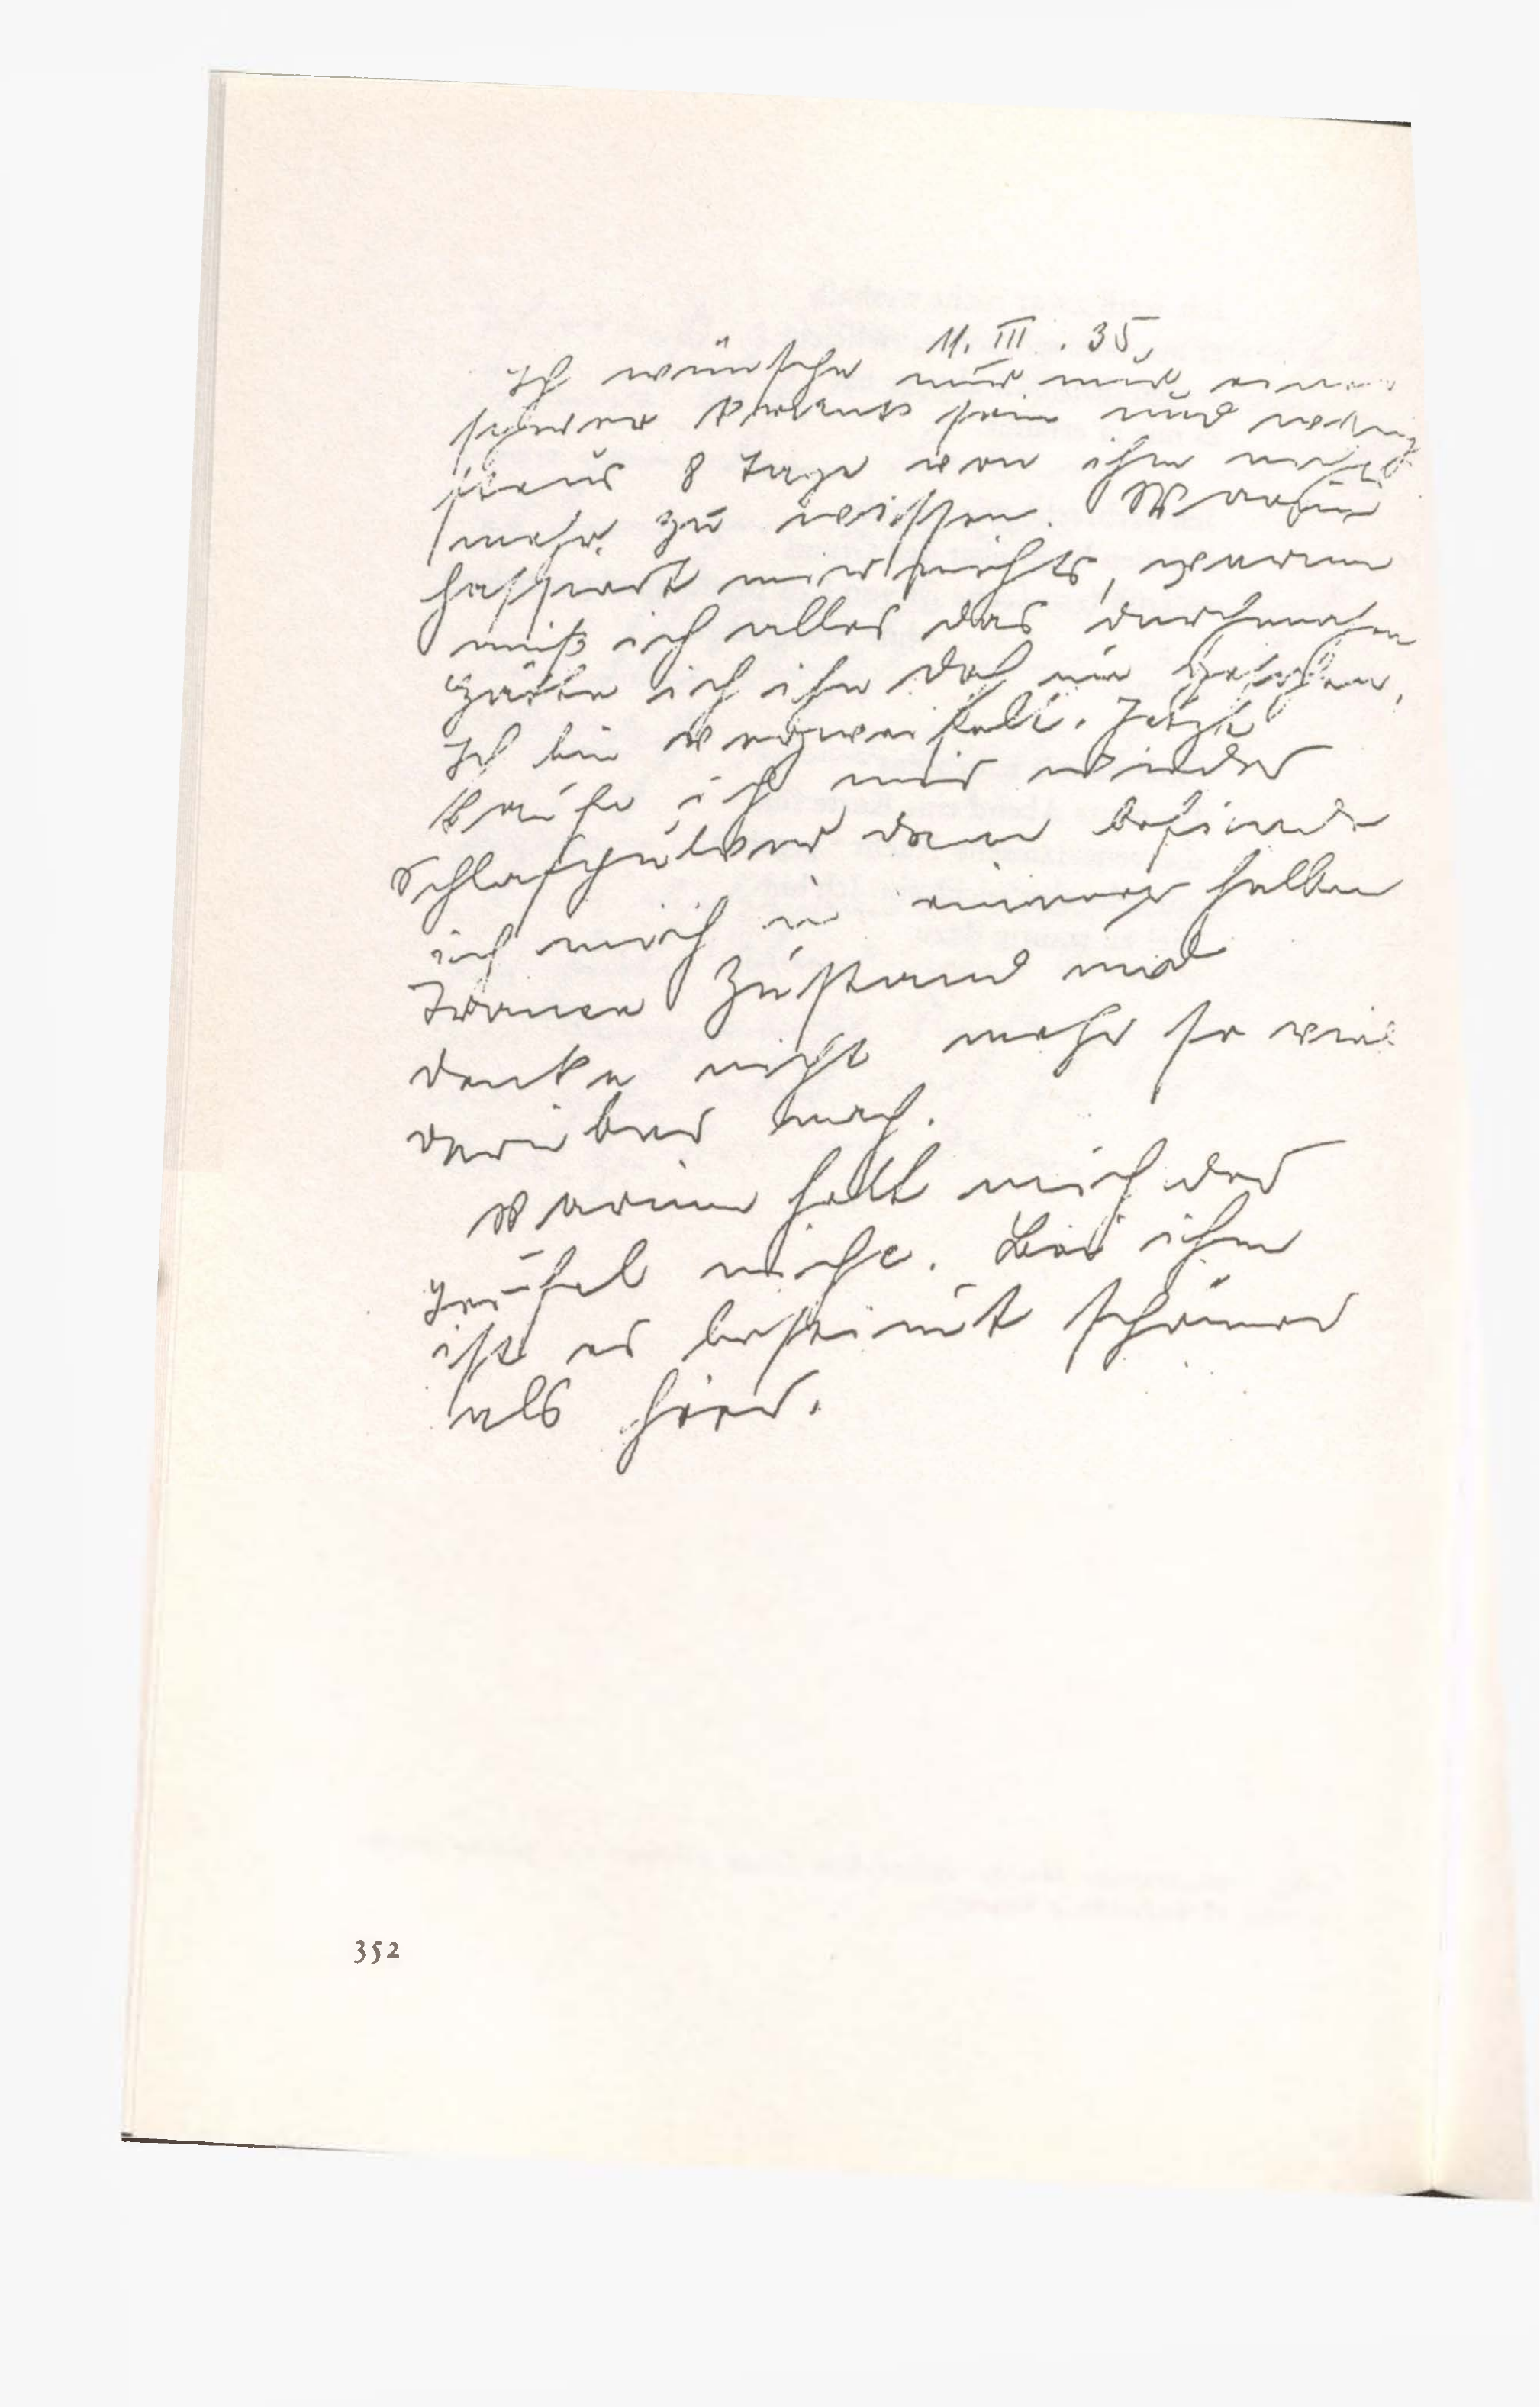 11. III. 35.
Ich wünsche mir nur eines
schwer krank sein und wenig
stens 8 Tage von ihm nichts
mehr zu wissen. Warum
passiert mir nichts, warum
muß ich alles das durchmachen
Hätte ich ihn doch nie gesehen.
Ich bin verzweifelt. Jetzt
kaufe ich mir wieder
Schlafpulver dann befinde
ich mich in einem halben
Trance Zustand und
denke nicht mehr so viel
darüber nach.
Warum holt mich der
Teufel nicht. Bei ihm
ist es bestimmt schöner
als hier.
352